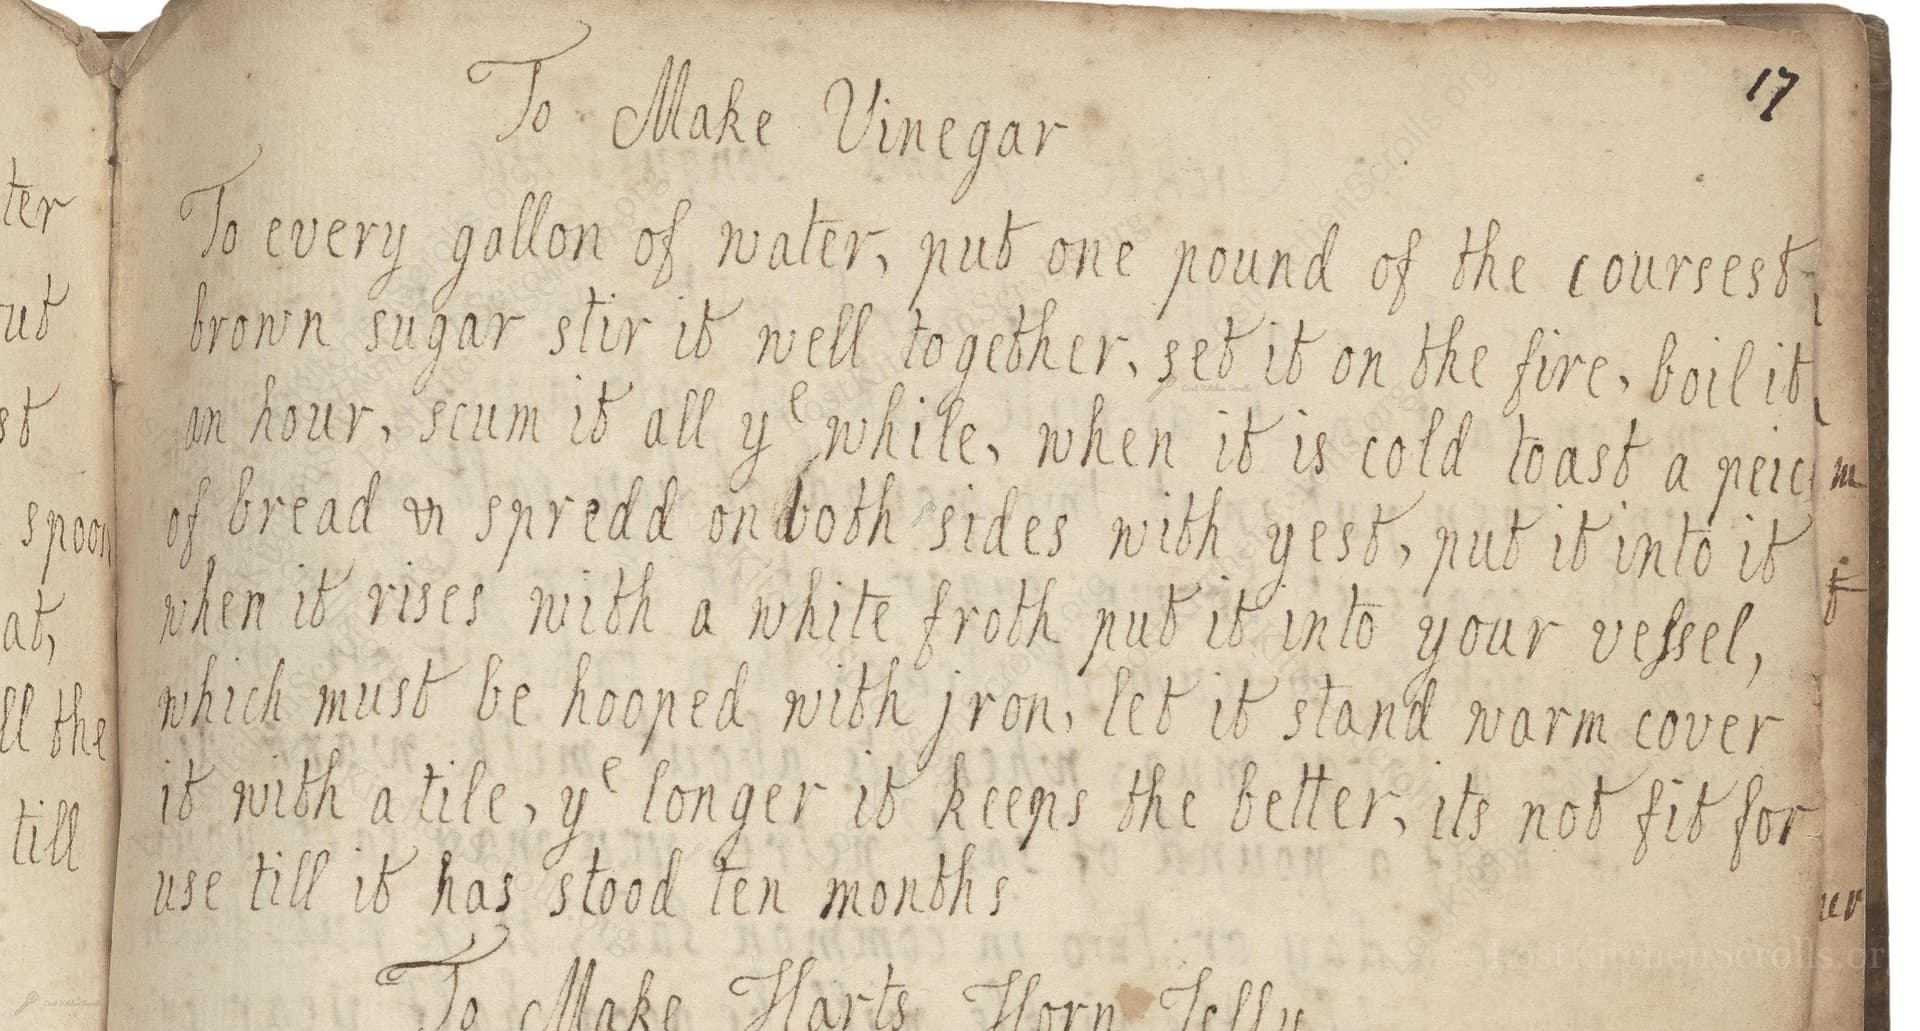 17
To Make Vinegar
To every gallon of water, put one pound of the coursest
brown sugar stir it well together, set it on the fire, boil it
an hour, scum it all yᵉ while, when it is cold toast a peic
of bread spredd on both sides with yest, put it into it
when it rises with a white froth put it into your veſsel,
which must be hooped with jron, let it stand warm cover
it with a tile, yᵉ longer it keeps the better, its not fit for
use till it has stood ten months
To Make Harts Horn Jelly
ter
ut
st
spoon
at,
ll the
till
m
t
ur
LostKitchenScrolls.or